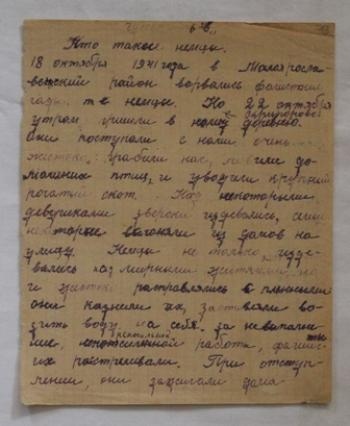 6 "в"
Кто такие немцы.
18 октября 1941 года в Малояросла-
вецкий район ворвались фашистские
гады, т. е немцы. Но 22 октября
утром пришли в нашу деревню.
Они поступали с нами очень
жестоко: грабили нас, ловили до-
машних птиц, и уводили крупный
рогатый скот. Над некоторыми
девушками зверски издевались,
некоторые выгоняли из домов на
улицу. Немцы не только изде-
вались над мирными жителями, но
и жестоко расправлялись с пленными
они казнили их, заставляли во-
зить воду на себя, за невыполне-
ние, работы, фашис-
ты их расстреливали. При отступ-
лении, они зажигали дома